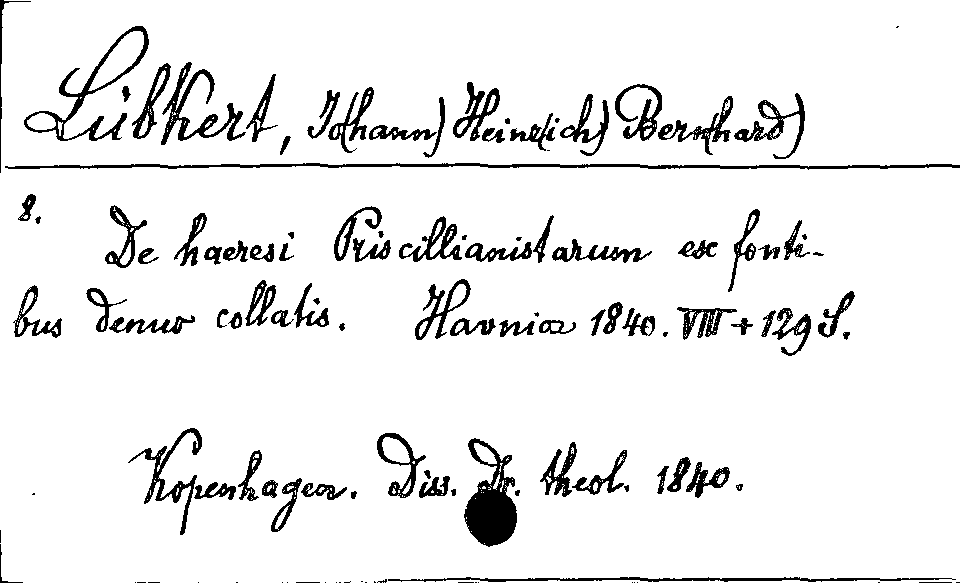 Lübkert, Joh(ann) Heinr(ich) Bern(hard)
8.
De haeresi Priscillianistarum ex fonti-
bus denuo collatis. Havniae 1840. VIII + 129 S.
Kopenhagen. Diss. Dr. theol. 1840.